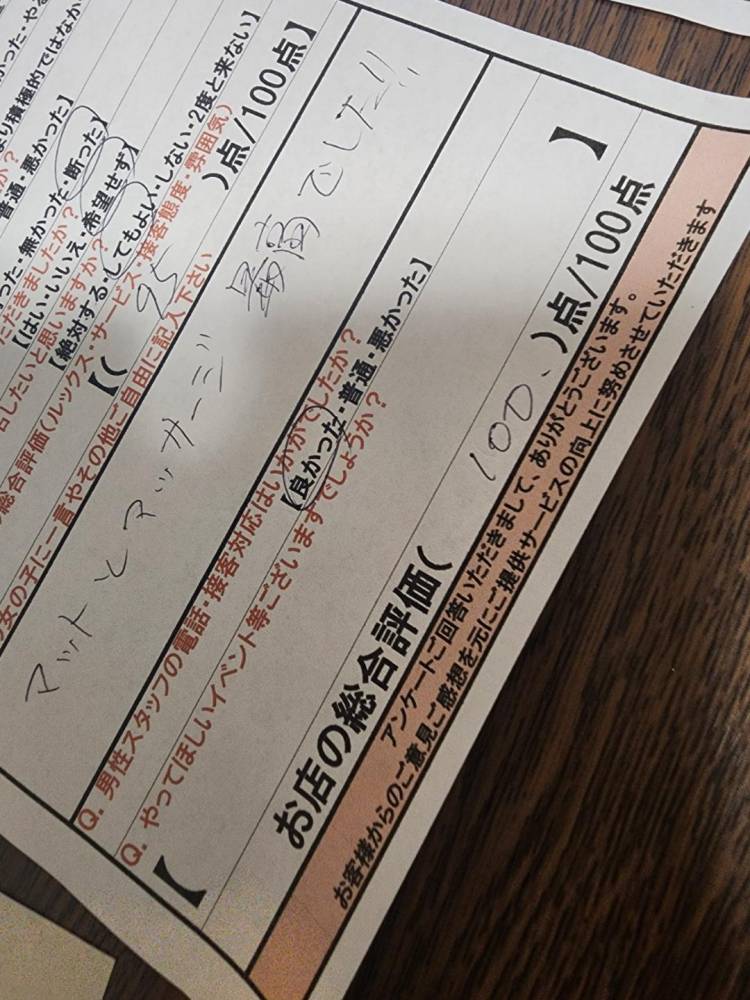 かった・やる
より積極的ではなか
か？
普通・悪かった】
った・無かった・断った】
ただきましたか？
【はい・いいえ・希望せず】
名したいと思いますか？
【絶対する・してもよい・しない・2度と来ない】
総合評価（ルックス・サービス・接客態度・雰囲気）
【（ 95 ）点/100点】
女の子に一言やその他ご自由に記入下さい
マットとマッサージ
最高でした!!
Q. 男性スタッフの電話・接客対応はいかがでしたか？
【良かった・普通・悪かった】
Q. やってほしいイベント等ございますでしょうか？
【 】
お店の総合評価（ 100. ）点/100点
アンケートご回答いただきまして、ありがとうございます。
お客様からのご意見ご感想を元にご提供サービスの向上に努めさせていただきます